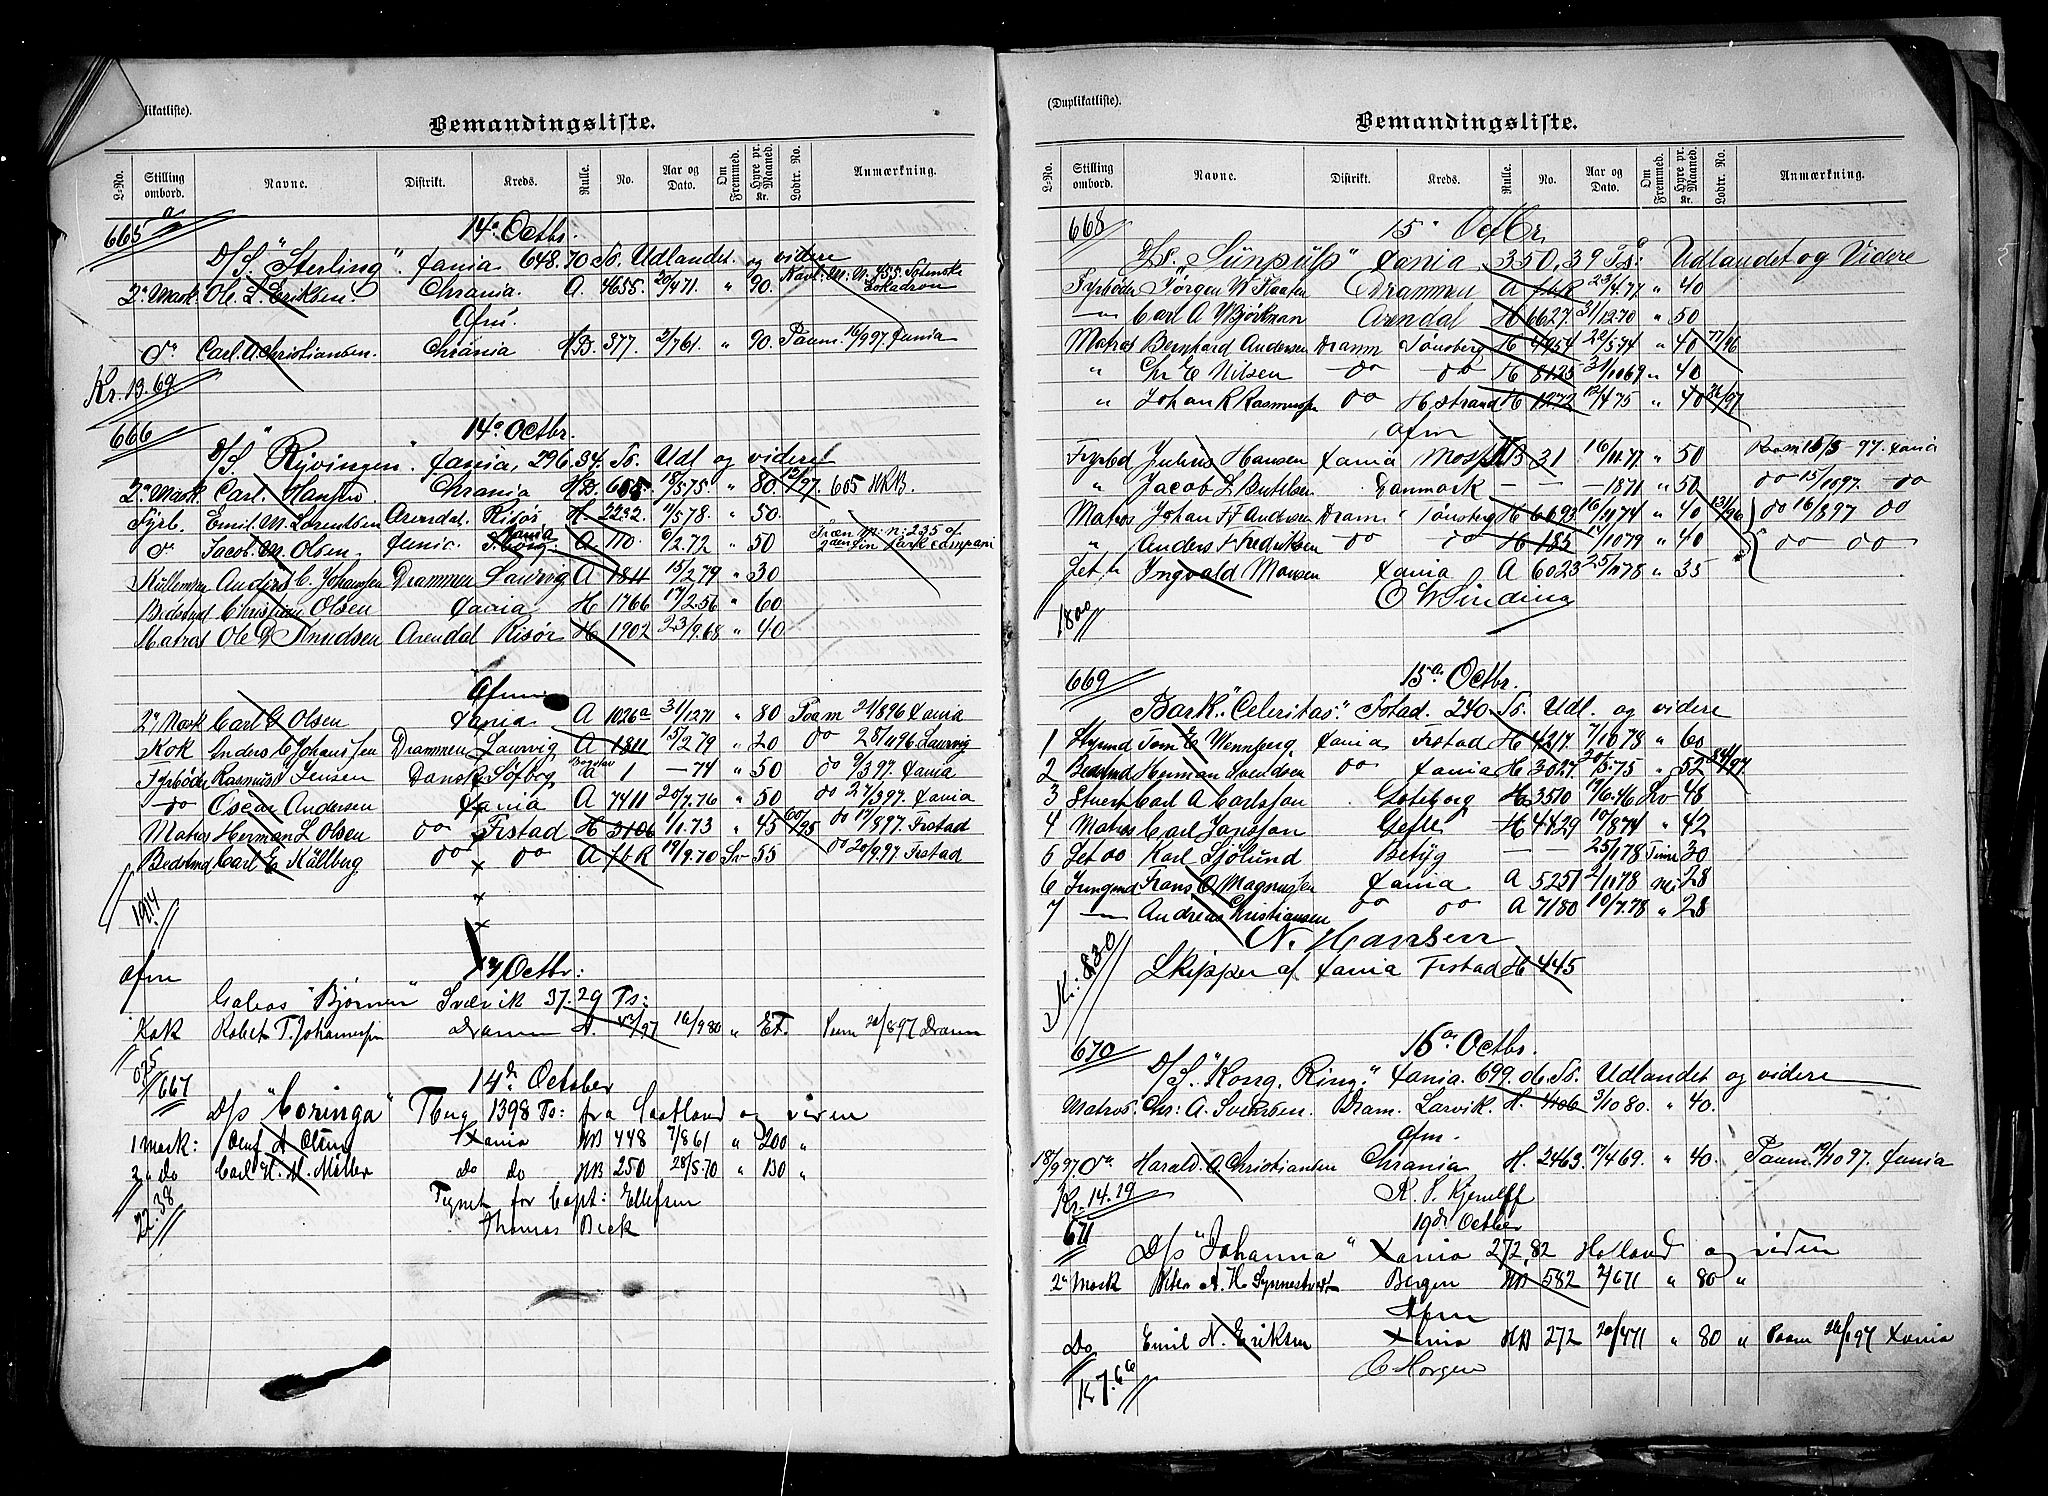 (Duplikatliste).
Bemandingsliste.
L-No. Stilling ombord. Navne. Distrikt. Kreds. Rulle. No. Aar og Dato. Om Fremmed. Hyre pr. Maaned. Kr. Lodtr. No. Anmærkning.
665 a 14a Octbr.
D/S. "Sterling". Xania 648.70 To. Udlandet og videre
2n Mask Ole L. Eriksen. Chrania. A. 4655. 20/471. " 90.
Afm.
do Carl. A. Christiansen. Chrania NB. 377. 2/761. " 90. Paam. 16/997. Xania
Kr. 13.69
666 14a Octbr.
D/S. "Ryvingen". Xania, 296.34. To. Udl og videre
2n Mask. Carl. Hansen. Chrania NB. 605. 18/575. " 80. 12/97. 605 NRB.
Fyrb. Emil. M. Lorentsen Arendal. Risør H. 2232. 11/578. " 50.
do Jacob. M. Olsen. Xania. A 110. 6/2.72 " 50
Kullemper Anders C. Johansen Drammen Laurvig A 1811 15/2.79 " 30
Bedstmd Christian Olsen Xania H 1766 17/2.56 " 60
Matros Ole G Knudsen Arendal Risør H 1902 23/9.68 " 40
Afm
2n Mask Carl G Olsen Xania A 1026a 31/1271 " 80 Paam 21/896 Xania
Kok Anders C Johanssen Drammen Laurvig A 1811 15/2.79 " 20 do 28/1196 Laurvig
Fyrbøder Rasmus Jensen Dansk A 1 — 74 " 50 do 9/397. Xania
do Oscar Andersen Xania A 7411 20/7.76 " 50 do 27/397. Xania
Matros Herman L Olsen do Frstad H 3106 1/1.73 " 45 60/95 do 17/897. Frstad
Bedstmd Carl E Källberg do do A fbk 19/9.70 Sv 55 do 20/9.97. Frstad
1914
Afm 14 Octbr:
Galeas "Bjørnen" Svelvik 37.29 Ts:
Kok Robert T. Johannessen Dramm A. 42/97 16/980 " Paam 20/897 Dramm
075
667 14de October
D/S "Coringa" Tbrg 1398 Ts: fra Scotland og videre
1 Mask: Oluf A Olsen Xania NB 448 7/861 " 200 "
2 " Do Carl H. M. Møller do do NB 250 28/5.70 " 130 "
Tegnet for Capt: Ellefsen
Thomas Beck
22.38
(Duplikatliste).
Bemandingsliste.
L-No. Stilling ombord. Navne. Distrikt. Kreds. Rulle. No. Aar og Dato. Om Fremmed. Hyre pr. Maaned. Kr. Lodtr. No. Anmærkning.
668 15 " Octbr
Xania 350,39 Ts: Udlandet og Videre
Fyrbøder Jørgen W Kaaten Drammen A fbk 23/4.77 " 40
— Carl A Bjørkman Arendal H 6627 31/1270 " 50
Matros Bernhard Andersen Dramm Tønsberg H 4954 22/574 " 40 77/96
" Chr E Nilsen do do H 8125 31/1069 " 40
" Johan R Rasmussen do H.strand H 1272 12/475 " 40 26/97
Afm
Fyrbd Julius Hansen Xania Moss NB 31 16/11.77 " 50 Paam 15/5-97. Xania
" Jacob L Bertelsen Danmark — — — 1871 " 50 do 15/1097. do
Matros Johan F F Andersen Dramm Tønsberg H 6693 16/1174 " 40 131/96 do 16/897 do
" Anders F Fredriksen do do H 185 11/1079 " 40 do do
Jet.m Ingvald Monsen Xania A 6023 25/178 " 35
O W Sinding
1800
669 15a Octbr.
Bark. "Celeritas". Fstad. 240 To. Udl. og videre
1 Styrmd Tom E Wennberg. Xania Frstad H 4217. 7/1078 " 60
2 Bedstmd Herman Svendsen do Xania H. 3027. 20/5.75 " 52 84/97
3 Stuert Carl A Carlsson. Gøteborg H 3510 19/6.46 Sv 48
4 Matros Carl Jansson Gefle H 4429 10/874 " 42
5 Jet do Karl Sjölund — — 25/178 30
6 Jungmd Frans O Magnussen Xania A 5251 2/1178 nei 28
7 — Andreas Christiansen do do A 7180 10/7.78 " 28
N. Hansen
Skipper af Xania Frstad H 445
Kr. 8.30
670 16a Octbr.
D/S. "Kong. Ring." Xania. 699.06. To. Udlandet og videre
Matros. Chr: A. Svensen. Dram. Larvik. H. 4106 3/1080. " 40.
Afm.
18/997. do Harald. A Christiansen Chrania H. 2463. 17/469. " 40. Paam. 19/1097. Xania
Kr. 14.19
671 19de October
D/S "Johanna" Xania 272,82 Holland og viden
2n Mask Peter A. H. Synnestvedt Bergen NB 582 2/671 " 80 "
Afm
Do Emil N. Eriksen Xania NB 272 20/471 " 80 " Paam 26/197 Xania
C Horgen
Kr 7.66